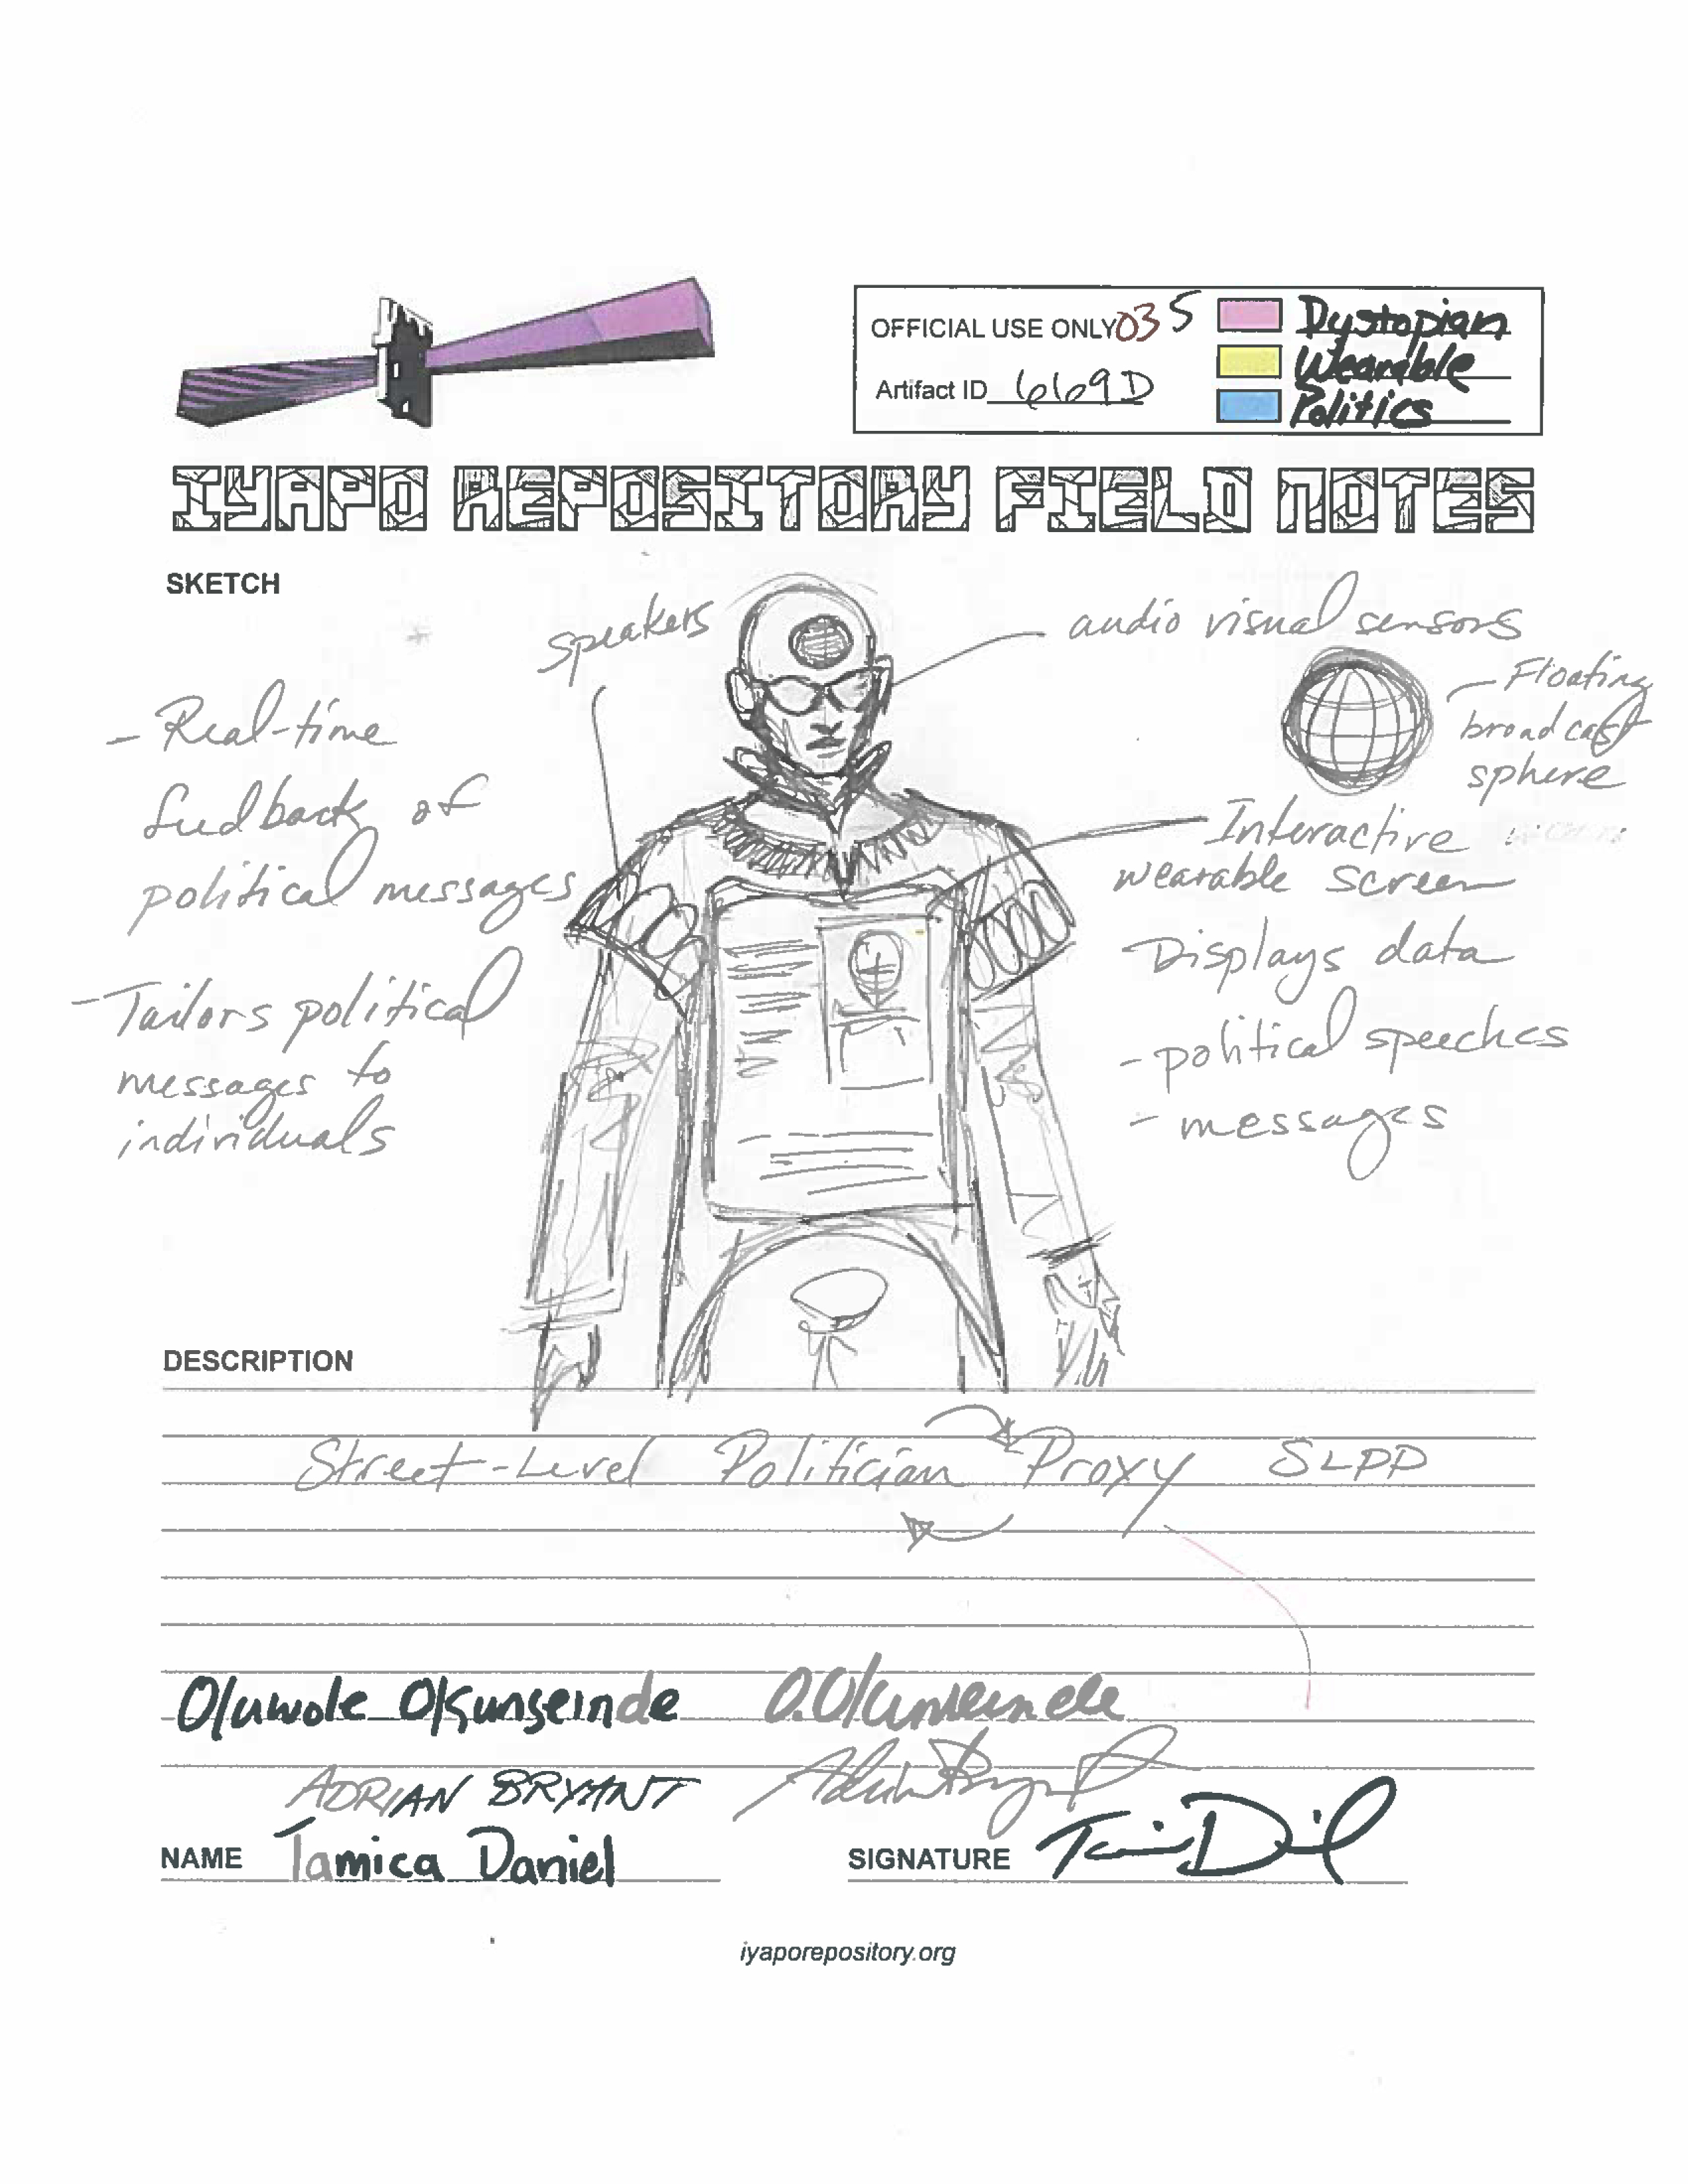 OFFICIAL USE ONLY 035
Artifact ID 669D
Dystopian
Wearable
Politics
IYAPO REPOSITORY FIELD NOTES
SKETCH
speakers
audio visual sensors
- Floating
broadcast
sphere
- Real-time
feedback of
political messages
- Tailors political
messages to
individuals
Interactive
wearable screen
Displays data
- political speeches
- messages
DESCRIPTION
Street-Level Politician Proxy SLPP
Oluwole Okunseinde O.Okunseinde
ADRIAN BRYANT Adrian Bryant
NAME Tamica Daniel SIGNATURE
iyaporepository.org